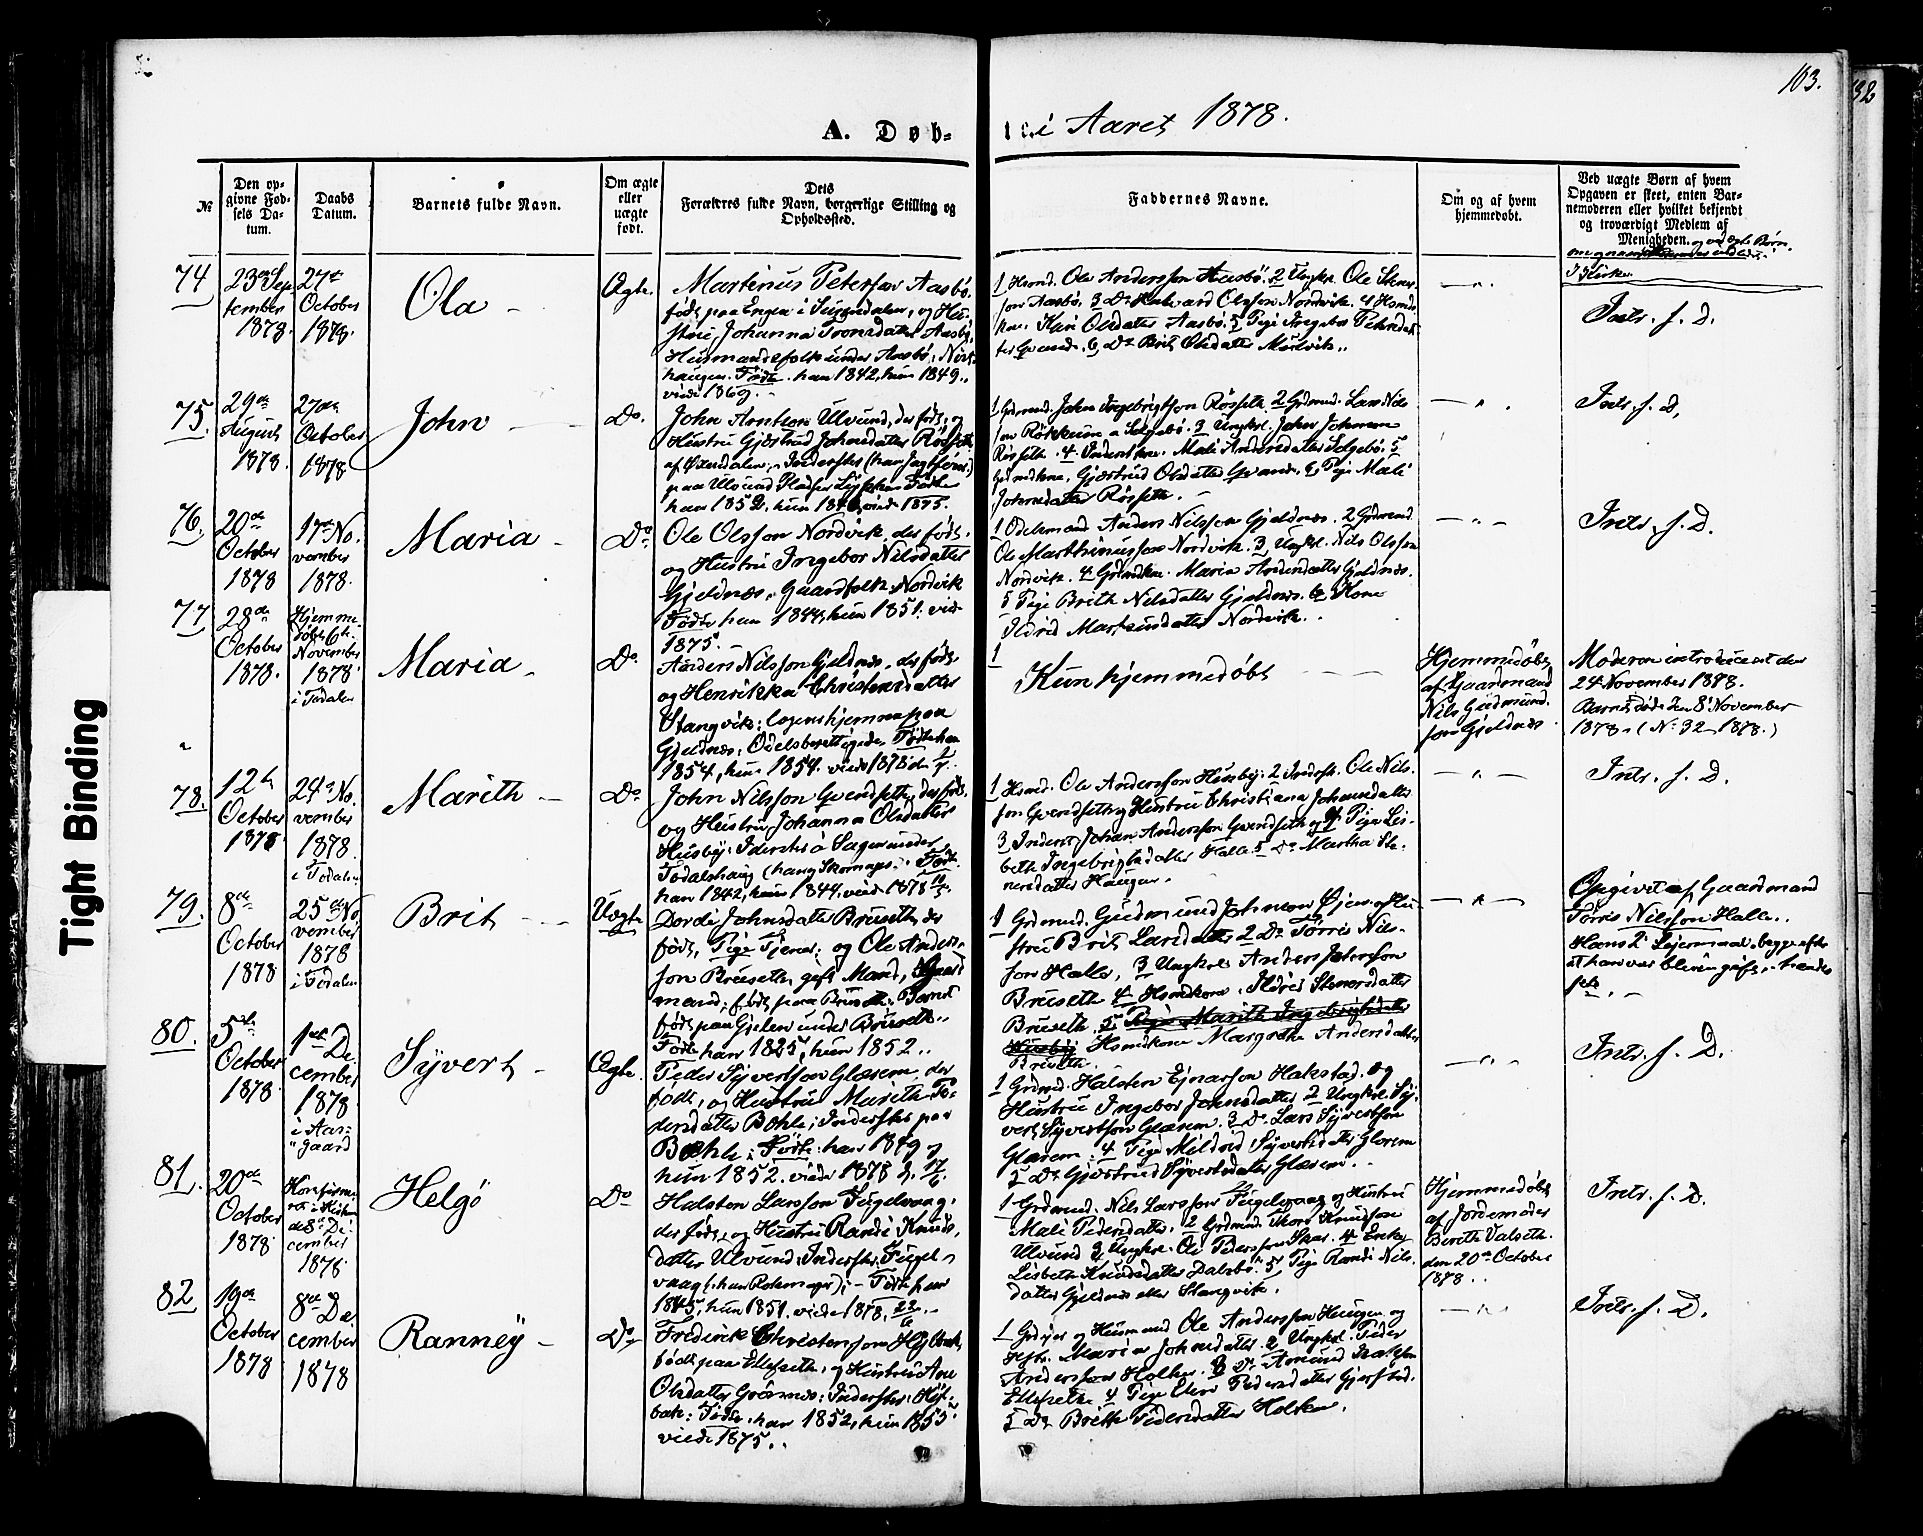 103.
132
A. Døb-
te i Aaret 1878.
№
Den op-
givne Fød-
sels Da-
tum.
Daabs
Datum.
Barnets fulde Navn.
Om ægte
eller
uægte
født.
Dets
Forældres fulde Navn, borgerlige Stilling og
Opholdssted.
Faddernes Navne.
Om og af hvem
hjemmedøbt.
Ved uægte Børn af hvem
Opgaven er skeet, enten Bar-
nemoderen eller hvilket bekjendt
og troværdigt Medlem af
Menigheden.
74
23de Sep
tember
1878.
27de
October
1878.
Ola
Ægte.
Martinus Peterson Aasbø,
født paa Engen i Surendalen, og Hu-
strue Johanna Tronsdatter Aasbø,
Husmandsfolk under Aasbø,
haugen. Født han 1842, hun 1849.,
viede 1869.
1 Hsmd. Ole Andersson Aasbø. 2 Ungkl. Ole Stener-
son Aasbø. 3 Do Halvard Olsson Nordvik. 4 Hsmds
kne. Kari Olsdatter Aasbø. 5 Pige Ingebor Petersdat-
ter Qvande. 6 Do Brit Olsdatter Mulvik.
Intr. f. D.
75.
29de
August
1878.
27de
October
1878
John
Do.
John Arntson Ulvund, der født, og
Hustru Gjertrud Johnsdatter Røsseth
af Øxendalen, Inderster (han Jagtfører)
paa Ulvund Pladsen Født
han 1852, hun 1846, viede 1875.
1 Grdmd. John Ingebrigtson Røsseth. 2 Grdmd. Lars Nils
son Røkkum a Selgebø. 3 Ungkl. John Johnson
Røsseth. 4 Inderstkne. Mali Andersdatter Selgebø. 5
Grdmdkne. Gjertrud Olsdatter Qvande. 6 Pige Mali
Johnsdatter Røsseth.
Intr. f. D.
76.
20de
October
1878
17de No-
vember
1878.
Maria
Do.
Ole Olsson Nordvik, der født,
og Hustru Ingebor Nilsdatter
Gjeldnæs, Gaardfolk, Nordvik
Født han 1844, hun 1851. vied
1875.
1 Odelsmand Anders Nilsson Gjeldnæs. 2 Grdmd.
Ole Marthinusson Nordvik. 3 Ungkl. Nils Olsson
Nordvik. 4 Grdmdkne. Maria Andersdatter Gjeldnæs.
5 Pige Brith Nilsdatter Gjeldnæs. 6 Kone
Ildrid Martinusdatter Nordvik.
Intr. f. D.
77
28de
October
1878.
Hjemme-
døbt 6te
November
1878
i Todalen
Maria
Do.
Anders Nilsson Gjeldnæs, der født,
og Henrikka Christensdatter
Stangvik: Logenshjemme paa
Gjeldnæs; Odelsberettigede. Født han
1854, hun 1854. viede 1878 den
1
Kun hjemmedøbt
Hjemmedøbt
af Gaardmand
Nils Gudmund-
son Gjeldnæs
Moderen introduceret den
24 November 1878.
Barnet døde den 8de November
1878. (No 32 1878.)
78.
12te
October
1878
24de No-
vember
1878
i Todalen
Marith
Do
John Nilsson Qvendseth, der født,
og Hustru Johanna Olsdatter
Husbøj; Inderster a Sagen under
Todalshaug (han Skomager). Født
han 1842, hun 1844. viede 1878
1 Hsmd. Ole Andersson Husbøj. 2 Inderst. Ole Nils-
son Qvendseth og Hustru Christiana Johansdatter
3 Inderst Johan Andersson Qvendseth og 4 Pige Lis-
beth Ingebrigtsdatter Halle 5 Do Martha Ste-
nersdatter Haugen.
Intr. f. D.
79.
8de
October
1878
25de No
vember
1878
i Todalen
Brit
Uægte
Dordi Johnsdatter Bruseth, der
født, Pige Tjener; og Ole Anders-
son Bruseth, gift Mand, Gaard
mand; født paa Bruseth. Barnet
født paa Gjelen under Bruseth.
Født han 1825, hun 1852..
1 Grdmd. Gudmund Johnson Øjen og Hu-
stru Brit Larsdatter 2 Do Torris Nils-
son Halle, 3 Ungkrl Anders Peterson
Bruseth 4 Hsmdkone. Ildrid Stenersdatter
Bruseth. 5 Pige Marith Ingebrigtsdatter
Husbøj Hsmdkone Margrethe Andersdatter
Bruseth.
Opgivet af Gaardmand
Torris Nilsson Halle.
Hans 2det Lejermaal, begge efter
at han var bleven gift,
80.
5te
October
1878.
1ste De-
cember
1878
i Aas-
gaard
Syvert
Ægte.
Peder Syvertson Glærem, der
født, og Hustru Marith Pe-
dersdatter Bøhle; Inderster paa
Bøhle; Født: han 1849 og
hun 1852. viede 1878 d. 17/
1 Grdmd. Halsten Ejnarson Hakstad, og
Hustru Ingebor Johnsdatter 2 Ungkrl. Sy-
vert Syvertson Glærem. 3 Do Lars Syvertson
Glærem. 4 Pige Mildrid Syvertsdatter Glærem
5 Do Gjertrud Syvertsdatter Glærem.
Intr. f. D.
81.
20de
October
1878
8de De
cember
1878.
Helgø
Do
Halsten Larsson Fugelvaag,
der født, og Hustru Randi Knuds-
datter Ulvund, Inderster, Fugel-
vaag (han Rokemager); Født han
1845, hun 1851. viede 1878. 23/6.
1 Grdmd. Nils Larsson Fugelvaag og Hustru
Mali Pedersdatter. 2 Grdmd. Thore Knudson
Ulvund 3 Ungkrl. Ole Pederson Skar. 4 Enke
Lisbeth Knudsdatter Dalsbø. 5 Pige Randi Nils-
datter Gjeldnæs eller Stangvik.
Hjemmedøbt
af Jordemoder
Bereth Valseth
den 20de October
1878..
Intr. f. D.
82
19de
October
1878
8de De-
cember
1878
Rannøy
Do
Frederik Christenson Højbak,
født paa Ellefseth, og Hustru Ane
Olsdatter Grønnæs; Inderster; Høj-
bak: Født. han 1852, hun 1855.
viede 1875.
1 og Husmand Ole Andersson Haugen og
Hstr. Marie Johnsdatter. 2 Ungkrl. Peder
Andersson Holken. 3 Do. Amund
Ellefseth 4 Pige Eli Pedersdatter
5 Do Brith Pedersdatter Holken.
Intr. f. D.
Tight Binding